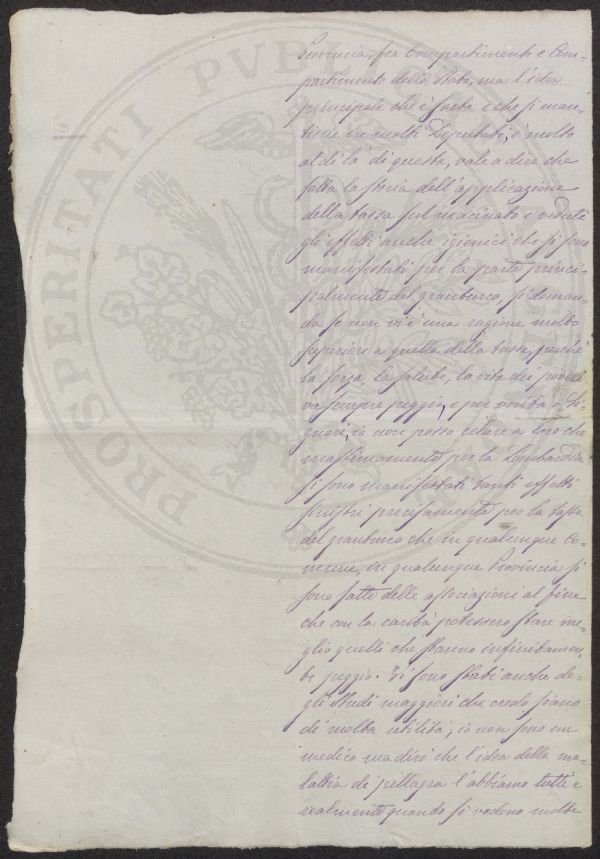 PROSPERITATI PVBL
Provincia, fra Compartimento e Com-
partimento dello Stato, ma l'idea
principale che è sorta e che si man-
tiene in molti Deputati, è molto
al di là di questa, vale a dire che
fatta la storia dell'applicazione
della tassa sul macinato e vedute
gli effetti anche igienici che si sono
manifestati per la parte princi-
palmente del granturco, si doman-
da se non vi è una ragione molto
superiore a quella della tassa, perchè
la forza, la salute, la vita dei poveri
va sempre peggio, e per verità o Si-
gnori, io non posso celare a loro che
massimamente per la Lombardia
si sono manifestati tanti effetti
sinistri precisamente per la tassa
del granturco che in qualunque Co-
mune, in qualunque Provincia si
sono fatte delle associazioni al fine
che con la carità potessero stare me-
glio quelli che stanno infinitamen-
te peggio. Vi sono stati anche de-
gli studi maggiori che credo siano
di molta utilità; io non sono un
medico ma dirò che l'idea della ma-
lattia di pellagra l'abbiamo tutti e
realmente quando si vedono molte